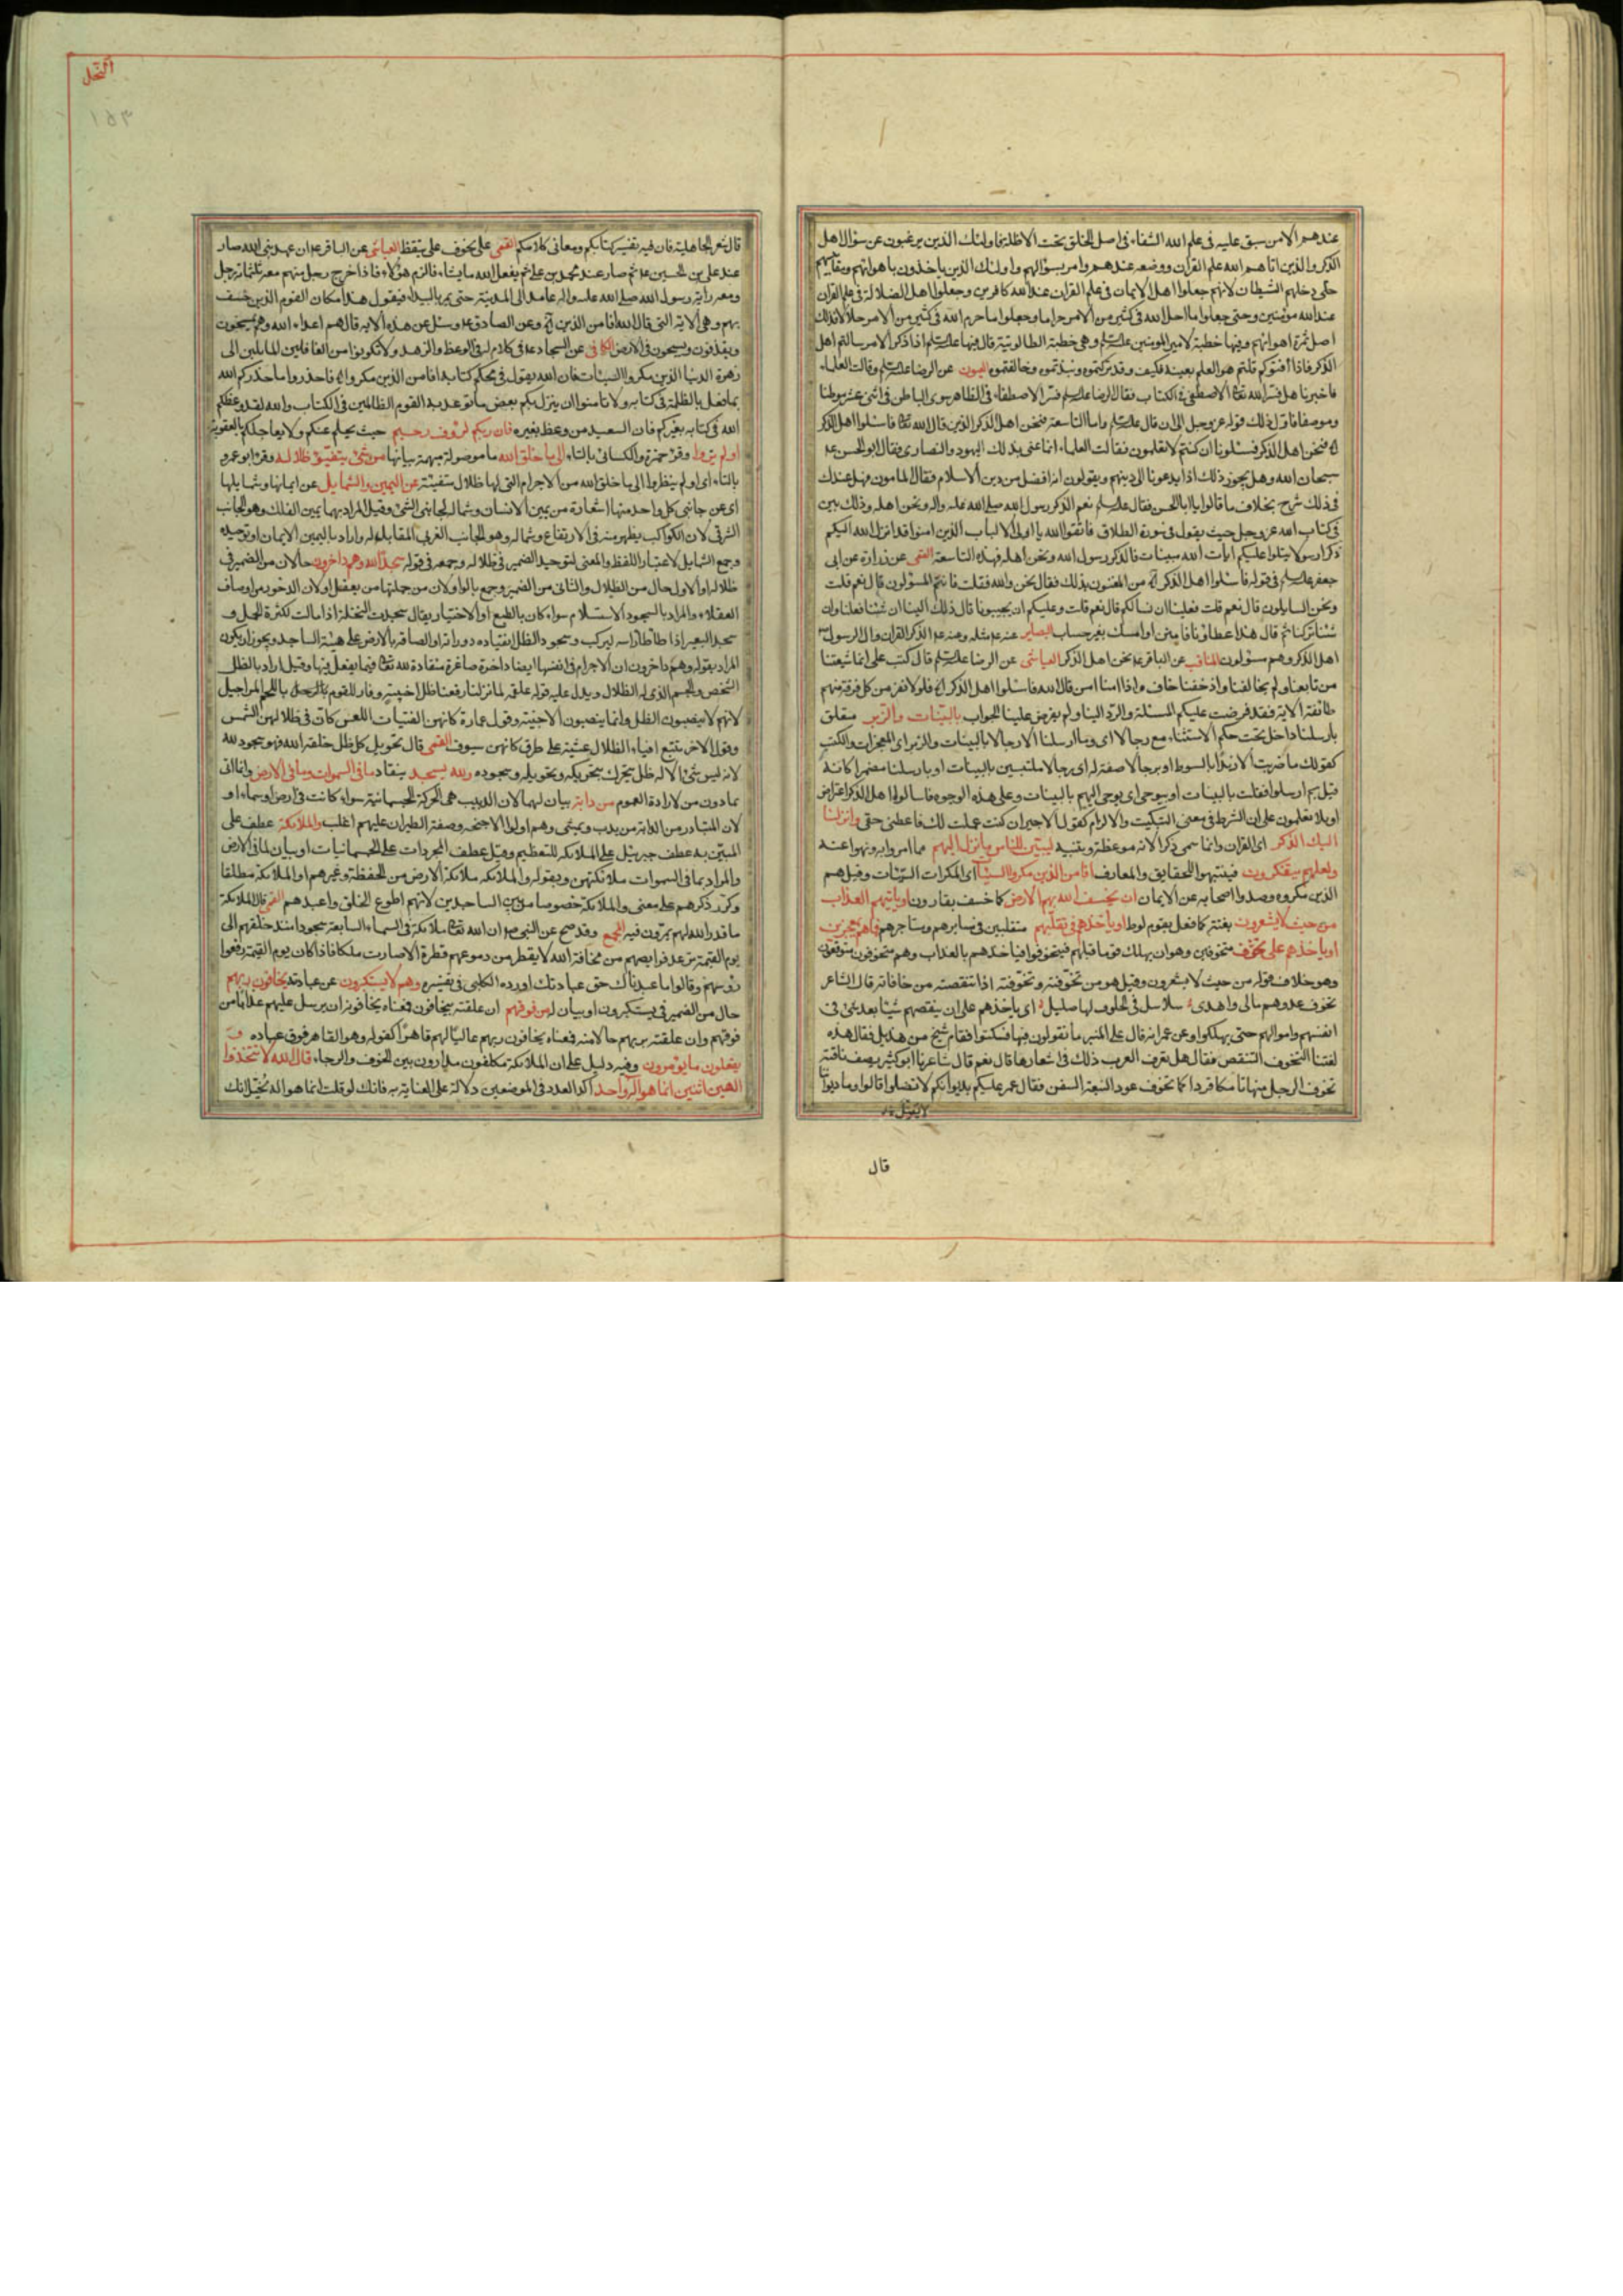 عندهم الا من سبق عليه فى علم الله الشقاء فى اصل الخلق تحت الاظلة فاولئك الذين يرغبون عن سؤال اهل
الذكر والذين اتاهم الله علم القران ووضعه عندهم وامر بسؤالهم واولئك الذين ياخذون باهوائهم ومقاييسهم
حتى دخلهم الشيطان لانهم جعلوا اهل الايمان فى علم القران عند الله كافرين وجعلوا اهل الضلالة فى علم القران
عند الله مؤمنين وحتى جعلوا ما احل الله فى كثير من الامر حراما وجعلوا ما حرم الله فى كثير من الامر حلالا فذلك
اصل ثمرة اهوائهم وفيها خطبة لامير المومنين وهى خطبة الطالوتية قال فيها اذا ذكر الامر سالتم اهل
الذكر فاذا افتوكم قلتم هو العلم بعينه فكيف وقد تركتموه ونبذتموه وخالفتموه العيون عن الرضا وقالت العلماء
فاخبرنا هل فسر الله الاصطفى فى الكتاب فقال الرضا فسر الاصطفاء فى الظاهر سوى الباطن فى اثنى عشر موطنا
وموضعا فاول ذلك قوله عز وجل الى ان قال واما التاسعة فنحن اهل الذكر الذين قال الله فاسئلوا اهل الذكر
فنحن اهل الذكر فسئلونا ان كنتم لا تعلمون فقالت العلماء انما عنى بذلك اليهود والنصارى فقال ابو الحسن
سبحان الله وهل يجوز ذلك اذا يدعونا الى دينهم ويقولون انه افضل من دين الاسلام فقال المامون فهل عندك
فى ذلك شرح بخلاف ما قالوا يا ابا الحسن فقال نعم الذكر رسول الله صلى الله عليه واله ونحن اهله وذلك بين
فى كتاب الله عز وجل حيث يقول فى سورة الطلاق فاتقوا الله يا اولى الالباب الذين امنوا قد انزل الله اليكم
ذكرا رسولا يتلوا عليكم ايات الله مبينات فالذكر رسول الله ونحن اهله فهذه التاسعة القمى عن زرارة عن ابى
جعفر فى قوله فاسئلوا اهل الذكر من المعنون بذلك فقال نحن والله فقلت فانتم المسؤلون قال نعم قلت
ونحن السايلون قال نعم قلت فعلينا ان نسالكم قال نعم قلت وعليكم ان تجيبونا قال ذلك الينا ان شئنا فعلنا وان
شئنا تركنا ثم قال هذا عطاؤنا فامنن او امسك بغير حساب البصاير عنه مثله وعنه الذكر القران وال الرسول
اهل الذكر وهم مسؤلون المناقب عن الباقر نحن اهل الذكر العياشى عن الرضا قال كتب على انما شيعتنا
من تابعنا ولم يخالفنا واذ خفنا خاف واذا امنا امن قال الله فاسئلوا اهل الذكر فلولا نفر من كل فرقة منهم
طائفة الاية فقد فرضت عليكم المسئلة والرد الينا ولم يفرض علينا الجواب بالبينات والزبر متعلق
بارسلنا داخل تحت حكم الاستثناء مع رجالا اى وما ارسلنا الا رجالا بالبينات والزبر اى المعجزات والكتب
كقولك ما ضربت الا زيدا بالسوط او برجالا صفة له اى رجالا ملتبسين بالبينات او بارسلنا مضمرا كانه
قيل بم ارسلوا فقلت بالبينات او بيوحى اى يوحى اليهم بالبينات وعلى هذه الوجوه فاسالوا اهل الذكر اعتراض
او بلا تعلمون على ان الشرط فى معنى التبكيت والالزام كقول الاجير ان كنت عملت لك فاعطنى حقى وانزلنا
اليك الذكر اى القران وانما سمى ذكرا لانه موعظة وتنبيه لتبين للناس ما نزل اليهم مما امروا به ونهوا عنه
ولعلهم يتفكرون فيتنبهوا للحقايق والمعارف افامن الذين مكروا السيئات اى المكرات السيئات وقيل هم
الذين مكروه وصدوا اصحابه عن الايمان ان يخسف الله بهم الارض كما خسف بقارون او ياتيهم العذاب
من حيث لا يشعرون بغتة كما فعل بقوم لوط او ياخذهم فى تقلبهم متقلبين فى سايرهم ومتاجرهم فما هم بمعجزين
او ياخذهم على تخوف متخوفين وهو ان يهلك قوما قبلهم فيتخوفوا فياخذهم بالعذاب وهم متخوفون متوقعون
وهو خلاف قوله من حيث لا يشعرون وقيل هو من تخوفته وتخونته اذا تنقصته من حافاته قال الشاعر
تخوف عدوهم مالى واهدى سلاسل فى الحلوق لها صليل اى ياخذهم على ان ينقصهم شيئا بعد شئ فى
انفسهم واموالهم حتى يهلكوا وعن عمر انه قال على المنبر ما تقولون فيها فسكتوا فقام شيخ من هذيل فقال هذه
لغتنا التخوف التنقص فقال هل تعرف العرب ذلك فى اشعارها قال نعم قال شاعرنا ابو كثير يصف ناقته
تخوف الرحل منها تامكا قردا كما تخوف عود النبعة السفن فقال عمر عليكم بديوانكم لا تضلوا قالوا وما ديواننا
قال
النحل
١٥٣
قال شعر الجاهلية فان فيه تفسير كتابكم ومعانى كلامكم القمى على تخوف على تيقظ العياشى عن الباقر ان عهد نبى الله صار
عند على بن الحسين ثم صار عند محمد بن على ثم يفعل الله ما يشاء فالزم هؤلاء فاذا خرج رجل منهم معه ثلثمائة رجل
ومعه راية رسول الله صلى الله عليه واله عامدا الى المدينة حتى يمر بالبيداء فيقول هذا مكان القوم الذين خسف
بهم وهى الاية التى قال الله افامن الذين وعن الصادق وسئل عن هذه الاية قال هم اعداء الله وهم يمسخون
ويقذفون ويسيحون فى الارض الكافى عن السجاد فى كلام له فى الوعظ والزهد ولا تكونوا من الغافلين المايلين الى
زهرة الدنيا الذين مكروا السيئات فان الله يقول فى محكم كتابه افامن الذين مكروا فاحذروا ما حذركم الله
بما فعل بالظلمة فى كتابه ولا تامنوا ان ينزل بكم بعض ما توعد به القوم الظالمين فى الكتاب والله لقد وعظكم
الله فى كتابه بغيركم فان السعيد من وعظ بغيره فان ربكم لرؤف رحيم حيث يحلم عنكم ولا يعاجلكم بالعقوبة
اولم يروا وقرء حمزة والكسائى بالتاء الى ما خلق الله ما موصولة مبهمة بيانها من شئ يتفيؤ ظلاله وقرء ابو عمرو
بالتاء اى اولم ينظروا الى ما خلق الله من الاجرام التى لها ظلال متفيئة عن اليمين والشمايل عن ايمانها وشمايلها
اى عن جانبى كل واحد منها استعارة من يمين الانسان وشماله لجانبى الشئ وقيل المراد بهما يمين الفلك وهو الجانب
الشرقى لان الكواكب يظهر منه فى الارتفاع وشماله وهو الجانب الغربى المقابل له واراد باليمين الايمان او توحيده
وجمع الشمايل لاعتبار اللفظ والمعنى لتوحيد الضمير فى ظلاله وجمعه فى قوله سجدا لله وهم داخرون حالان من الضمير فى
ظلاله او الاول حال من الظلال والثانى من الضمير وجمع بالواو لان من جملتها من يعقل او لان الدخور من اوصاف
العقلاء والمراد بالسجود الاستسلام سواء كان بالطبع او الاختيار يقال سجدت النخلة اذا مالت لكثرة الحمل و
سجد البعير اذا طاطا راسه ليركب وسجود الظل انقياده دورانه او الصاقه بالارض على هيئة الساجد ويجوز ان يكون
المراد بقوله وهم داخرون ان الاجرام فى انفسها ايضا داخرة صاغرة منقادة لله فيما يفعل فيها وقيل اراد بالظل
الشخص والجسم الذى له الظلال ويدل عليه قوله علقمه لما نزلنا رفعنا ظل اخبية وفار للقوم باللحم المراجيل
لانهم لا ينصبون الظل وانما ينصبون الاخبية وقول عمارة كانهن الفتيات اللعس كان فى ظلالهن الشمس
وقول الاخر تتبع افياء الظلال عشية على طرق كانهن سيوف القمى قال تحويل كل ظل خلقه الله فهو سجود لله
لانه ليس شئ الا له ظل يتحرك بتحريكه وتحويله وسجوده ولله يسجد ينقاد ما فى السموات وما فى الارض وانما اتى
بما دون من لارادة العموم من دابة بيان لهما لان الدبيب هى الحركة الجسمانية سواء كانت فى ارض او سماء او
لان المتبادر من الدابة من يدب ويمشى وهم اولوا الاجنحة وصفة الطيران عليهم اغلب والملائكة عطف على
المبين به عطف جبرئيل على الملائكة للتعظيم وقيل عطف المجردات على الجسمانيات او بيان لما فى الارض
والمراد بما فى السموات ملائكتهن وبقوله والملائكة ملائكة الارض من الحفظة وغيرهم او الملائكة مطلقا
وكرر ذكرهم على معنى والملائكة خصوصا من بين الساجدين لانهم اطوع الخلق واعبدهم القمى قال الملائكة
ما قدر الله لهم يمرون فيه المجمع وقد صح عن النبى ان الله ملائكة فى السماء السابعة سجودا منذ خلقهم الى
يوم القيمة ترعد فرايصهم من مخافة الله لا يقطر من دموعهم قطرة الا صارت ملكا فاذا كان يوم القيمة رفعوا
رؤسهم وقالوا ما عبدناك حق عبادتك اورده الكلبى فى تفسيره وهم لا يستكبرون عن عبادته يخافون ربهم
حال من الضمير فى يستكبرون او بيان له من فوقهم ان علقته بيخافون فمعناه يخافونه ان يرسل عليهم عذابا من
فوقهم وان علقته بربهم حالا منه فمعناه يخافون ربهم عاليا لهم قاهرا كقوله وهو القاهر فوق عباده و
يفعلون ما يؤمرون وفيه دليل على ان الملائكة مكلفون مدارون بين الخوف والرجاء قال الله لا تتخذوا
الهين اثنين انما هو اله واحد اكد العدد فى الموضعين دلالة على العناية به فانك لو قلت انما هو اله لخيل انك